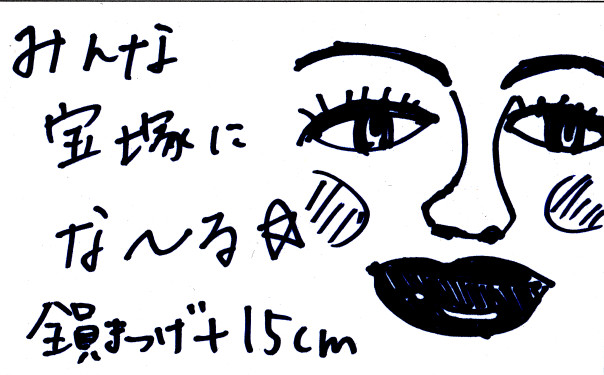 みんな
宝塚に
な〜る☆
鎻まつげ+15cm